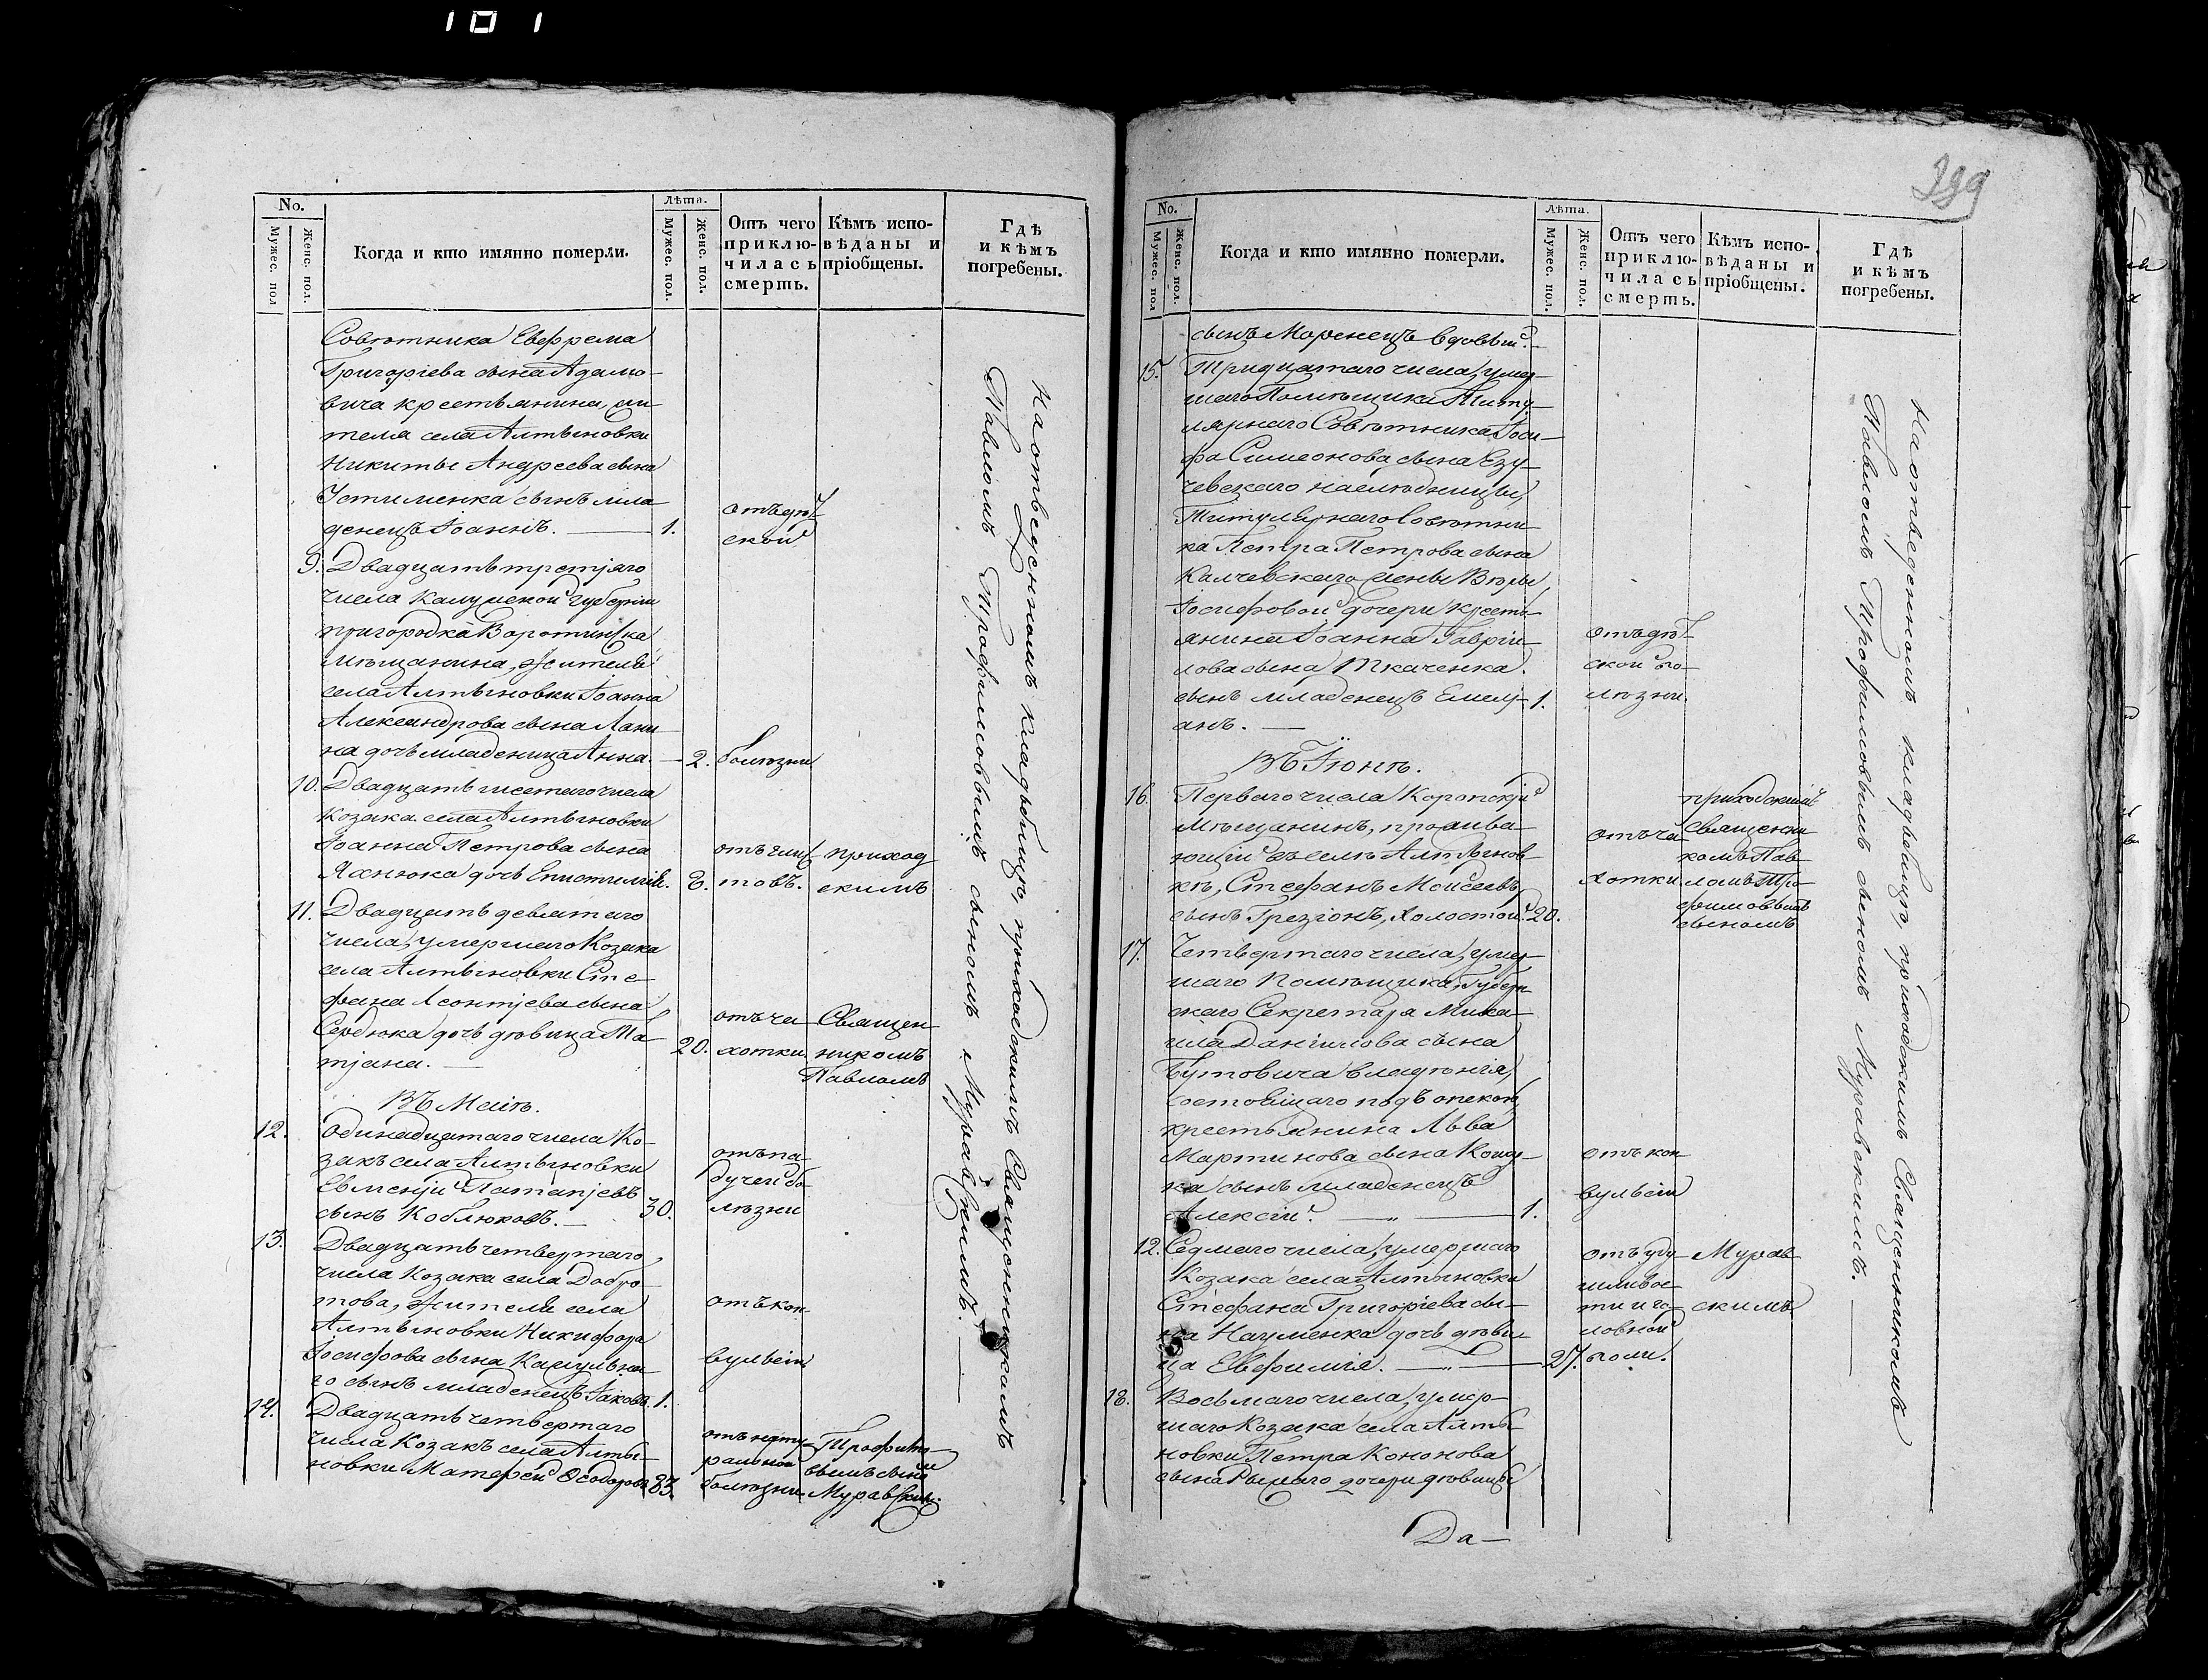 101
No.
Мужес. пол
Женс. пол.
Когда и кто имянно померли.
Лѣта.
Мужес. пол.
Женс. пол.
Отъ чего приклю-
чилась
смерть.
Кѣмъ испо-
вѣданы и
пріобщены.
Гдѣ
и кѣмъ
погребены.
Совѣтника Евфрема
Григоріева сына Адамо-
вича крестьянина, жи-
теля села Алтыновки
Никиты Андреева сына
Устименка сынъ мла-
денецъ Іоаннъ. — 1. отъ дѣт-
ской
9. Двадцать третяго
числа Калужской губерніи
пригородка Воротинска
мѣщанина, жителя
села Алтыновки Іоанна
Александрова сына Лани-
на дочь младеница Анна. — 2. болѣзни
10. Двадцать шестаго числа
козака села Алтыновки
Іоанна Петрова сына
Яхнюка дочь Епистимія. отъ глис-
товъ. приход-
скимъ
11. Двадцать девятаго
числа, умершаго козака
села Алтыновки Сте-
фана Леонтіева сына
Сердюка дочь дѣвица Та-
тіана. — 20. отъ ча-
хотки. Священ-
никомъ
Павломъ
Въ Маіѣ.
12. Одинадцатаго числа Ко-
закъ села Алтыновки
Евменій Патапіевъ
сынъ Коблюковъ. — 30. отъ па-
дучей бо-
лѣзни
13. Двадцать четвертаго
числа Козака села Добро-
това, жителя села
Алтыновки Никифора
Іосифова сына
го сынъ младенецъ Іаковъ. 1. отъ кон-
вульсіи
14. Двадцать четвертаго
числа Козакъ села Алты-
новки Матфей Ѳеодоровъ 83. отъ нату-
ральной
болѣзни. Трофимо-
вымъ сыномъ
Муравскимъ.
На отведенномъ кладбищѣ, приходскимъ Священникомъ
Павломъ Трофимовымъ сыномъ Муравскимъ. —
399
No.
Мужес. пол
Женс. пол.
Когда и кто имянно померли.
Лѣта.
Мужес. пол.
Женс. пол.
Отъ чего приклю-
чилась
смерть.
Кѣмъ испо-
вѣданы и
пріобщены.
Гдѣ
и кѣмъ
погребены.
сынъ Моренецъ вдовый. —
15. Тридцатаго числа, умер-
шаго Помѣщика Титу-
лярнаго Совѣтника Іоси-
фа Симеонова сына Езу-
чевскаго наслѣдницы,
Титулярнаго Совѣтни-
ка Петра Петрова сына
Калчевскаго жены Вѣры
Іосифовой дочери крестья-
янина Іоанна Гаврии-
лова сына Ткаченка
сынъ младенецъ Емели-
анъ. — 1. отъ дѣт-
ской бо-
лѣзни.
Въ Іюнѣ.
16. Перваго числа Коропскій
мѣщанинъ, прожива-
ющій въ селѣ Алтынов-
кѣ, Стефанъ Моисеевъ
сынъ Грезіонъ, холостой. 20. отъ ча-
хотки приходскимъ
Священни-
комъ Пав-
ломъ Тро-
фимовымъ
сыномъ
17. Четвертаго числа, умер-
шаго Помѣщика, Губерн-
скаго Секретаря Миха-
ила Даніилова сына
Бутовича владѣнія,
состоящаго подъ опекою,
крестьянина Льва
Мартинова сына
ка сынъ младенецъ
Алексій. — 1. отъ кон-
вульсіи
12. Седмаго числа, умершаго
Козака села Алтыновки
Стефана Григоріева сы-
на Науменка дочь дѣви-
ца Евфимія. — 27. отъ уду-
шливос-
ти и го-
ловной
боли. Мурав-
скимъ
18. Восьмаго числа, умер-
шаго Козака села Алты-
новки Петра Кононова
сына Рымаго дочери дѣвицы
Да-
На отведенномъ кладбищѣ, приходскимъ Священникомъ
Павломъ Трофимовымъ сыномъ Муравскимъ. —